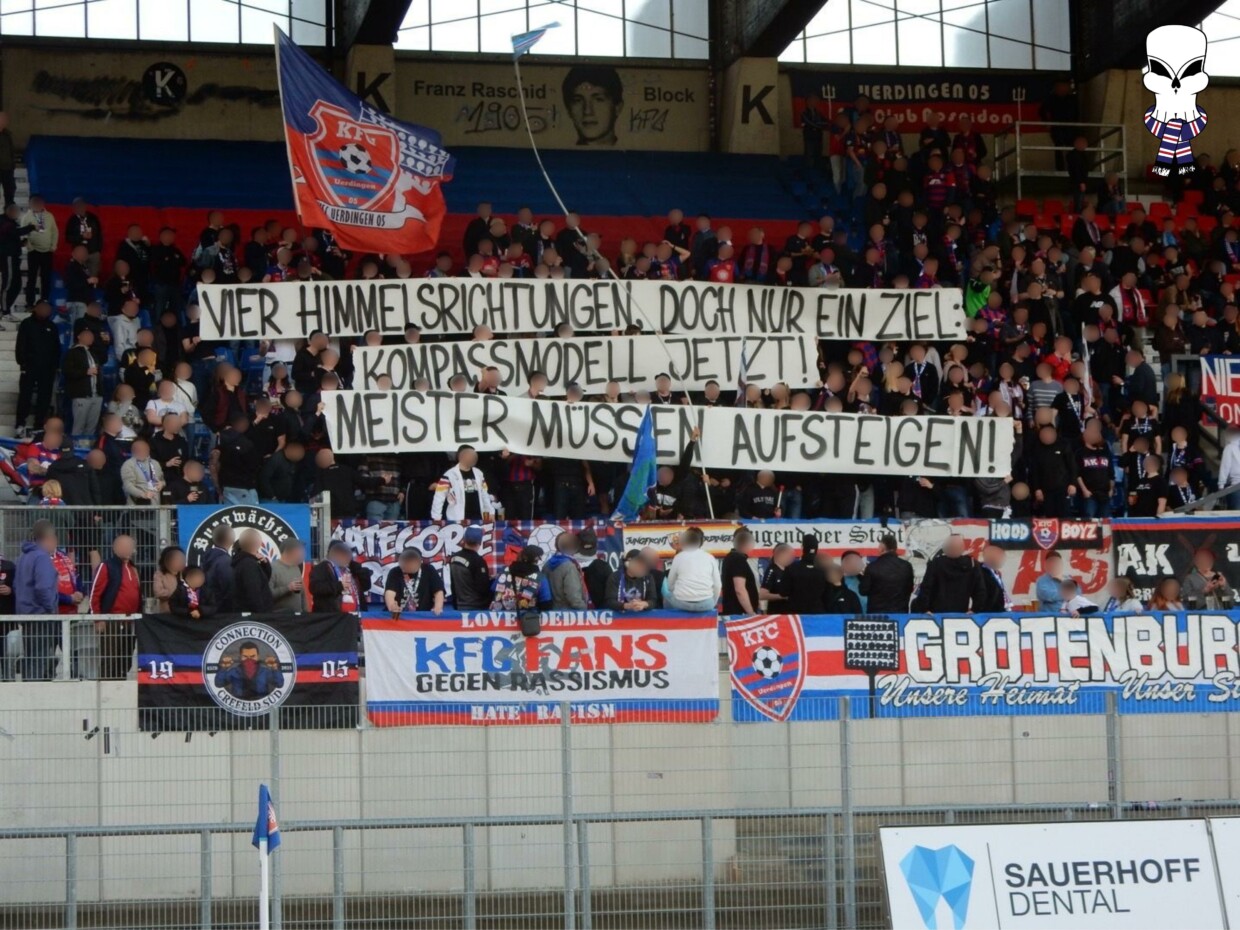 Franz Raschid
Block
K
K
K
1905!
UERDINGEN 05
Club Poseidon
KFC
Uerdingen
05
KFC UERDINGEN 05
VIER HIMMELSRICHTUNGEN, DOCH NUR EIN ZIEL:
KOMPASSMODELL JETZT!
MEISTER MÜSSEN AUFSTEIGEN!
NIE
Burgwächter
KATEGORIE
JUNGFRONT
Jugend der Stadt
HOOD
KFC
BOYZ
AK
CONNECTION
19
05
CREFELD SÜD
KFC FANS
GEGEN RASSISMUS
HATE RACISM
KFC
Uerdingen
GROTENBUR
Unsere Heimat
Unser St
SAUERHOFF
DENTAL